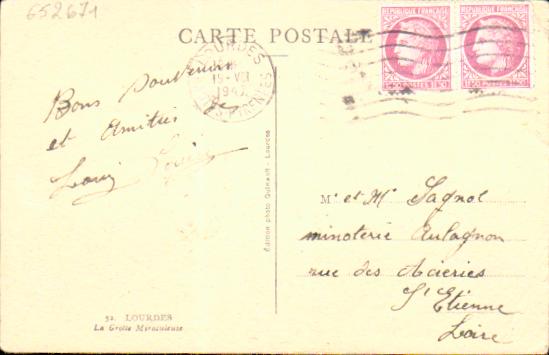 652671
CARTE POSTALE
REPUBLIQUE FRANÇAISE
REPUBLIQUE FRANÇAISE
1F50 POSTES 1F50
1F50 POSTES 1F50
LOURDES
15 - VII
194
PYRENEES
Bons Souvenirs
et Amitiés
Louis
Édition photo Lourdes
Mr et Me Sagnol
minoterie Aulagnon
rue des Acieries
St Etienne
Loire
52. LOURDES
La Grotte Miraculeuse